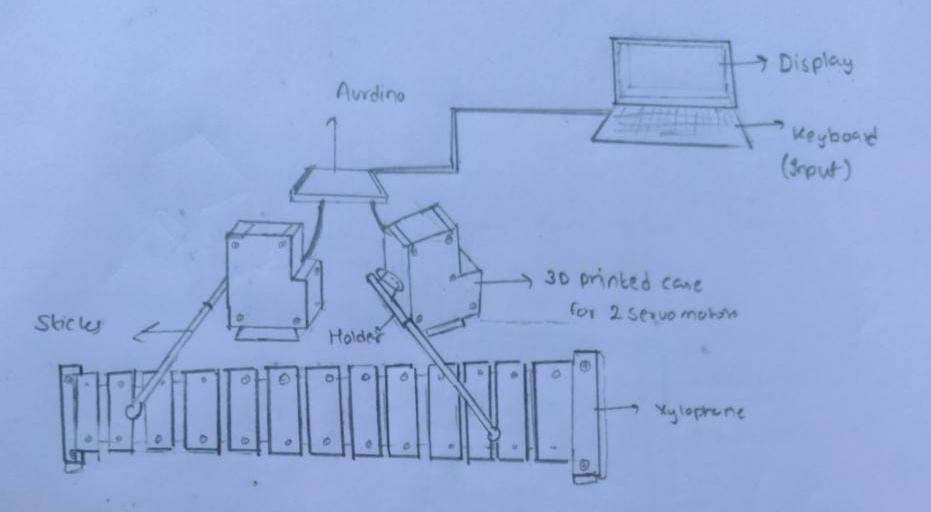 Display
Aurdino
Keyboard
(Input)
3D printed case
for 2 servo motors
Sticks
Holder
Xylophone